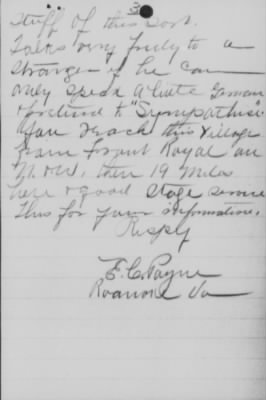 3
stuff of this sort.
Talks very freely to a
stranger if he can
only speak a little German
& pretend to "Sympathise"
You reach this village
from Front Royal on
N. & W., then 19 miles
here & good stage service
This for your information,
Respy
E. C. Payne
Roanoke Va